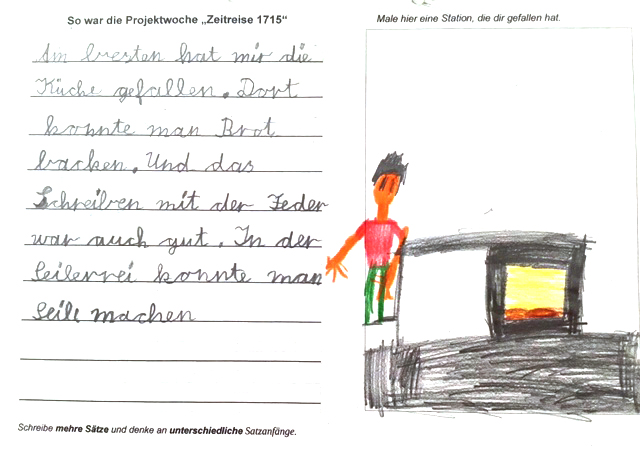 So war die Projektwoche „Zeitreise 1715“
Am besten hat mir die
Küche gefallen. Dort
konnte man Brot
backen. Und das
Schreiben mit der Feder
war auch gut. In der
Seilerrei konnte man
Seile machen
Schreibe mehre Sätze und denke an unterschiedliche Satzanfänge.
Male hier eine Station, die dir gefallen hat.